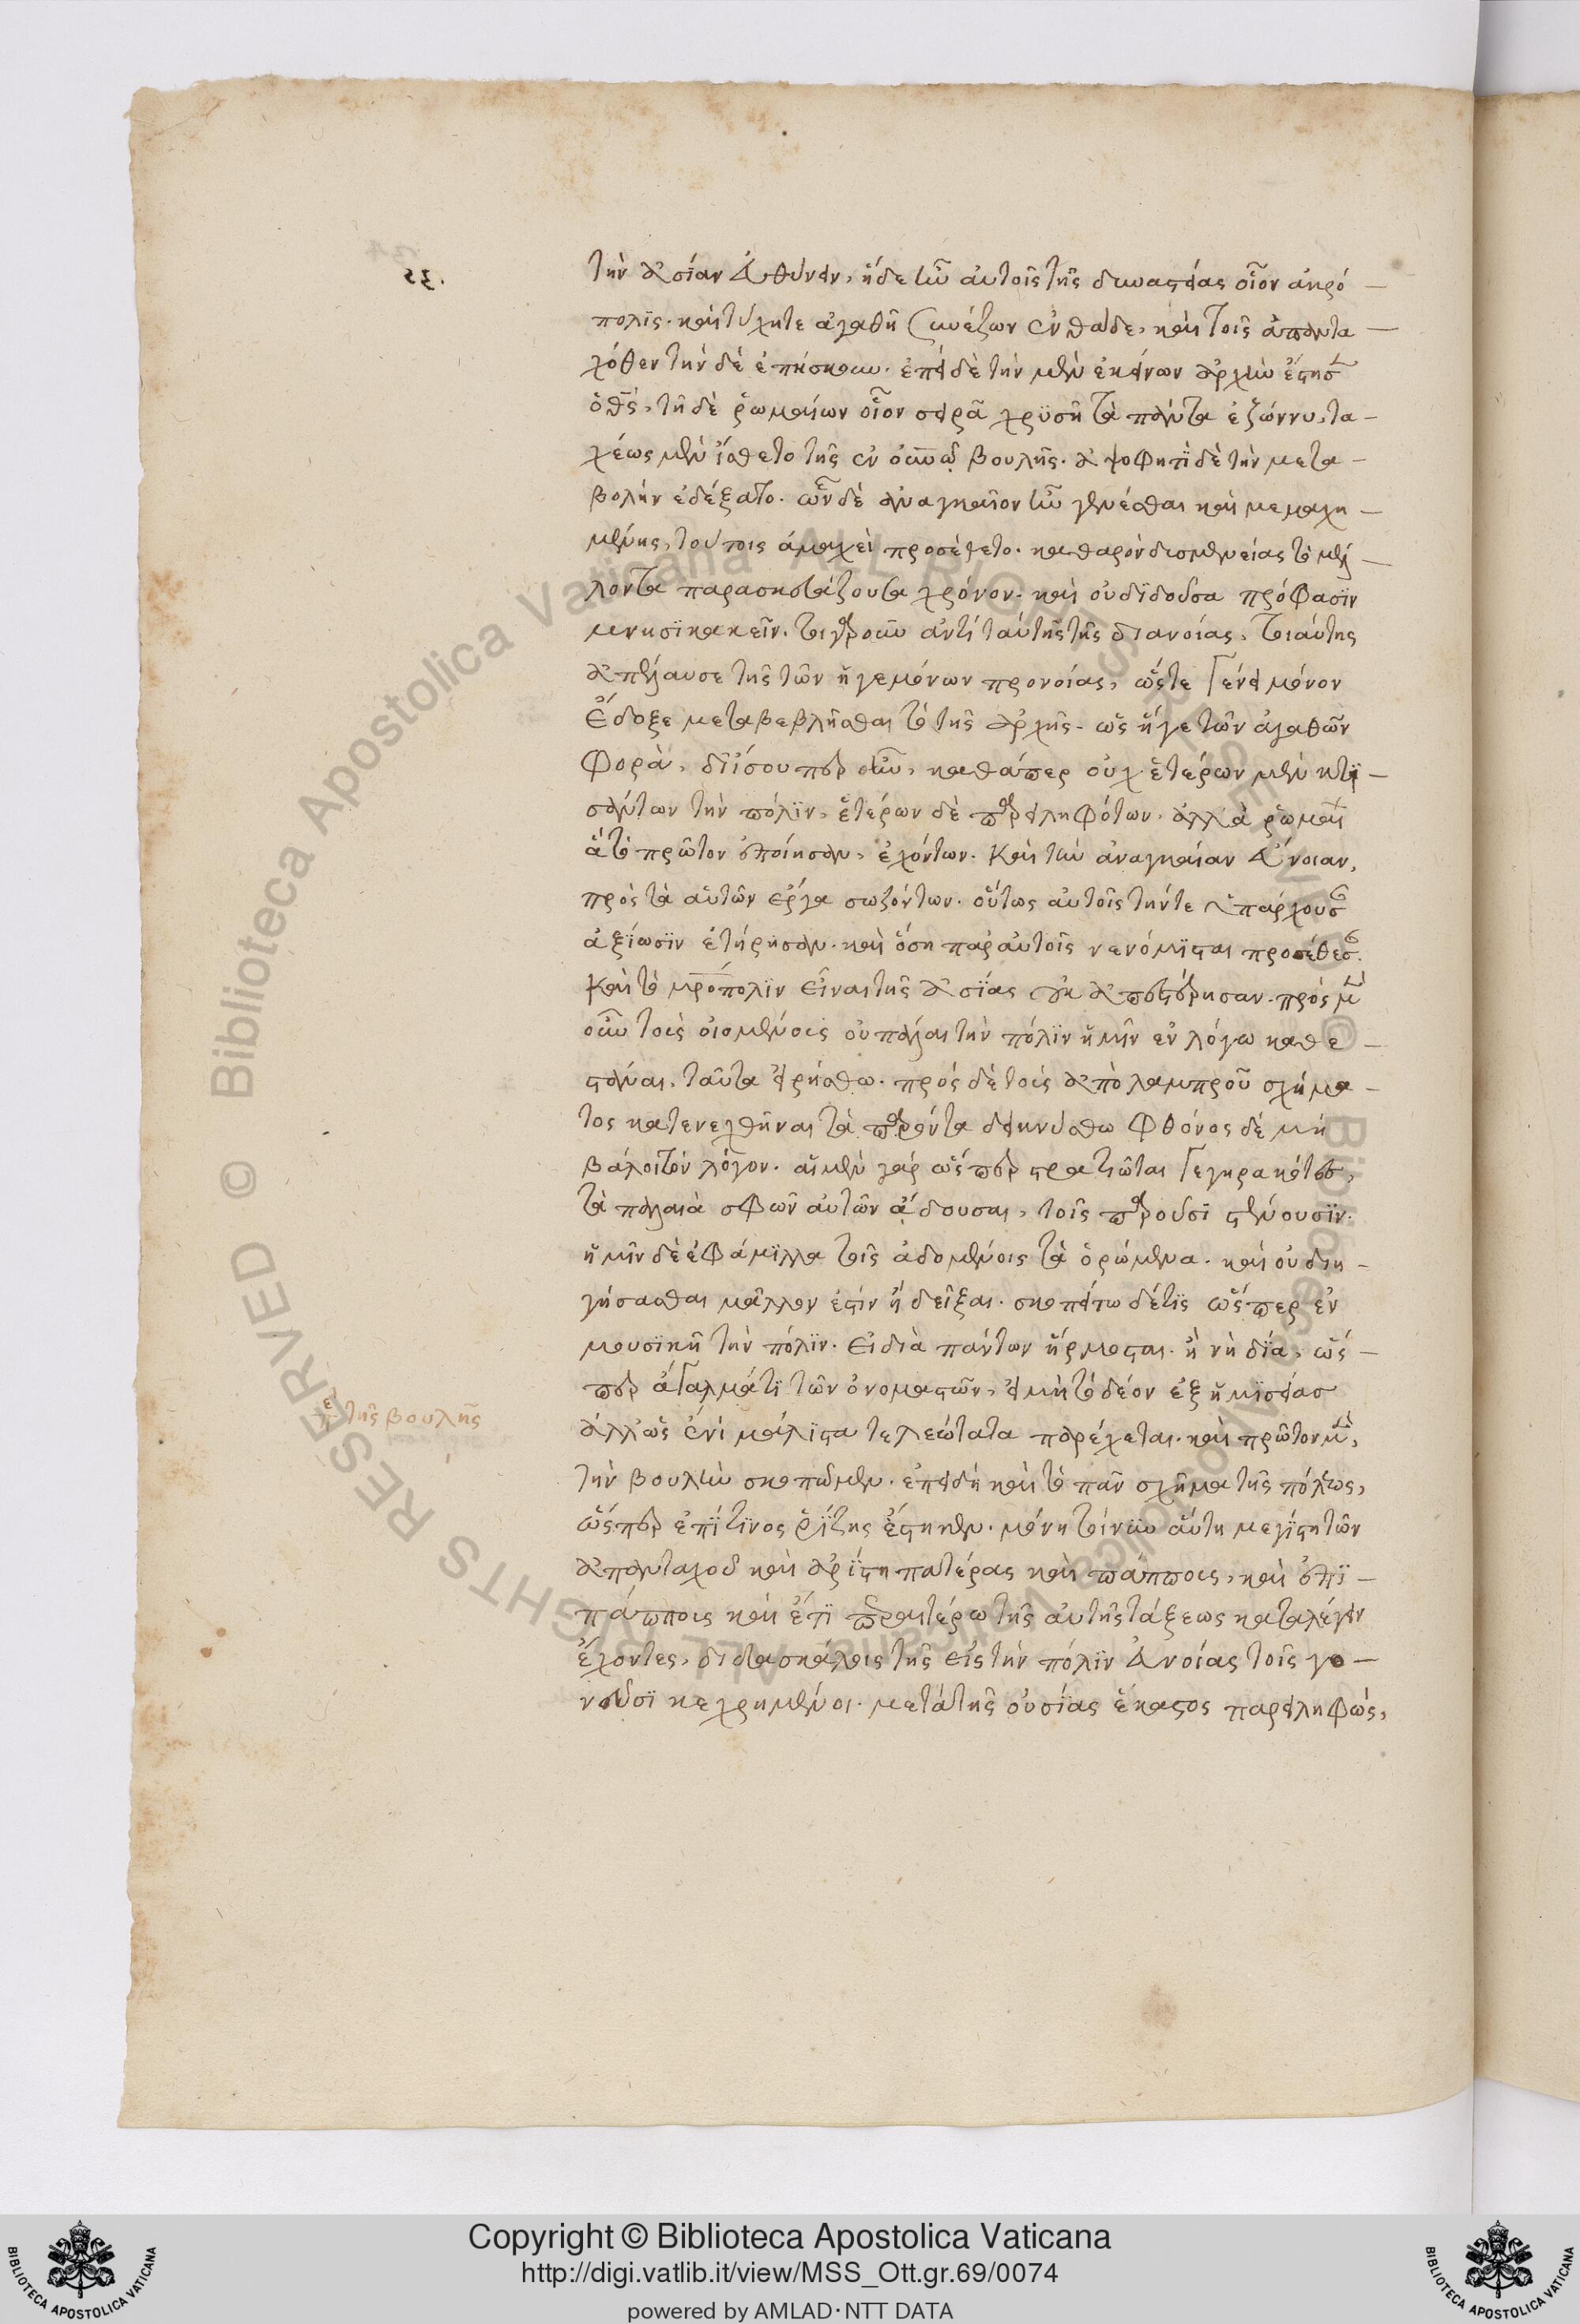 τὴν ἀσίαν εὐθύνειν, ἥδε ἦν αὐτοῖς τῆς δυναστείας οἷον ἀκρό
πολις. καὶ τύχητε ἀγαθῆ συνέζων ἐνθάδε, καὶ τοῖς ἁπαντα
χόθεν τὴν δὲ ἐπήσκουν. ἐπεὶ δὲ τὴν μὲν ἐκείνων ἀρχὴν ἔστησεν
ὁ θεός, τῆ δὲ ῥωμαίων οἷον σειρᾶ χρυσῆ τὰ πάντα ἐζώννυ, τα
χέως μὲν ἤσθετο τῆς ἐν οὐρανῷ βουλῆς. ἀψοφητὶ δὲ τὴν μετα
βολὴν ἐδέξατο. ὧν δὲ ἀναγκαῖον ἦν γενέσθαι καὶ μεμαχη
μένης, τούτοις ἀμαχεὶ προσέθετο. καθαρὸν δυσμενείας τὸ μέλ
λοντα παρασκευάζουσα χρόνον. καὶ οὐ διδοῦσα πρόφασιν
μνησικακεῖν. τοιγαροῦν ἀντὶ ταύτης τῆς διανοίας, τοιαύτης
ἀπέλαυσε τῆς τῶν ἡγεμόνων προνοίας, ὥστε ἑνὶ μόνον
ἔδοξε μεταβεβλῆσθαι τὸ τῆς ἀρχῆς. ὡς ἥγε τῶν ἀγαθῶν
φορὰ, δι ἴσου περιῆν, καθάπερ οὐχ ἑτέρων μὲν κτι
σάντων τὴν πόλιν, ἑτέρων δὲ παρειληφότων. ἀλλὰ ῥωμαίων
ἃ τὸ πρῶτον ἐποίησαν, ἐχόντων. καὶ τὴν ἀναγκαίαν εὔνοιαν,
πρὸς τὰ αὑτῶν ἔργα σωζόντων. οὕτως αὐτοῖς τήντε ὑπάρχουσαν
ἀξίωσιν ἐτήρησαν. καὶ ὅση παρ αὐτοῖς νενόμισται προσέθεσαν.
καὶ τὸ μητρόπολιν εἶναι τῆς ἀσίας οὐκ ἀπεστέρησαν. πρὸς μὲν
οὖν τοὺς οἰομένους οὐ πάλαι τὴν πόλιν ἡμῖν ἐν λόγω καθε
στάναι, ταῦτα εἰρήσθω. πρὸς δὲ τοὺς ἀπὸ λαμπροῦ σχήμα
τος κατενεχθῆναι τὰ παρόντα δεικνύσθω φθόνος δὲ μὴ
βάλοι τὸν λόγον. αἱ μὲν γὰρ ὥσπερ στρατιῶται γεγηρακότες,
τὰ παλαιὰ σφῶν αὐτῶν ᾄδουσαι, τοῖς παροῦσι στένουσιν.
ἡμῖν δὲ ἐφάμιλλα τοῖς ἀδομένοις τὰ ὁρώμενα. καὶ οὐ διη
γήσασθαι μᾶλλον ἐστὶν ἢ δεῖξαι. σκοπείτω δέτις ὥσπερ ἐν
μουσικῆ τὴν πόλιν. εἰ διὰ πάντων ἥρμοσται. ἢ νὴ δία, ὥσ
περ ἀγάλματι τῶν ὀνομαστῶν, εἰ μὴ τὸ δέον ἐξ ἡμισείας
ἀλλ ὡς ἔνι μάλιστα τελεώτατα παρέχεται. καὶ πρῶτον μὲν,
τὴν βουλὴν σκοπῶμεν. ἐπειδὴ καὶ τὸ πᾶν σχῆμα τῆς πόλεως,
ὥσπερ ἐπί τινος ῥίζης ἕστηκεν. μόνη τοίνυν αὕτη μεγίστη τῶν
ἁπανταχοῦ καὶ ἀρίστη πατέρας καὶ πάππους, καὶ ἐπι
πάππους καὶ ἔτι περαιτέρω τῆς αὐτῆς τάξεως καταλέγειν
ἔχοντες, διδασκάλοις τῆς εἰς τὴν πόλιν εὐνοίας τοῖς γο
νεῦσι κεχρημένοι. μετὰ τῆς οὐσίας ἕκαστος παρειληφὼς,
35.
περὶ τῆς βουλῆς
Copyright © Biblioteca Apostolica Vaticana
http://digi.vatlib.it/view/MSS_Ott.gr.69/0074
powered by AMLAD·NTT DATA